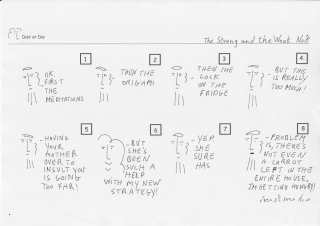 Diet or Die
The Strong and the Weak No?
1
2
3
4
- OK
FIRST
THE
MEDITATIONS
- THEN THE
ORIGAMI
- THEN THE
LOCK
ON THE
FRIDGE
- BUT THIS
IS REALLY
TOO MUCH!
5
6
7
8
- HAVING
YOUR
MOTHER
OVER TO
INSULT YOU
IS GOING
TOO FAR!
- BUT
SHE'S
BEEN
SUCH A
HELP
WITH MY NEW
STRATEGY!
- YEP.
SHE
SURE
HAS
- PROBLEM
IS, THERE'S
NOT EVEN
A CARROT
LEFT IN THE
ENTIRE HOUSE.
I'M GETTING HUNGRY!